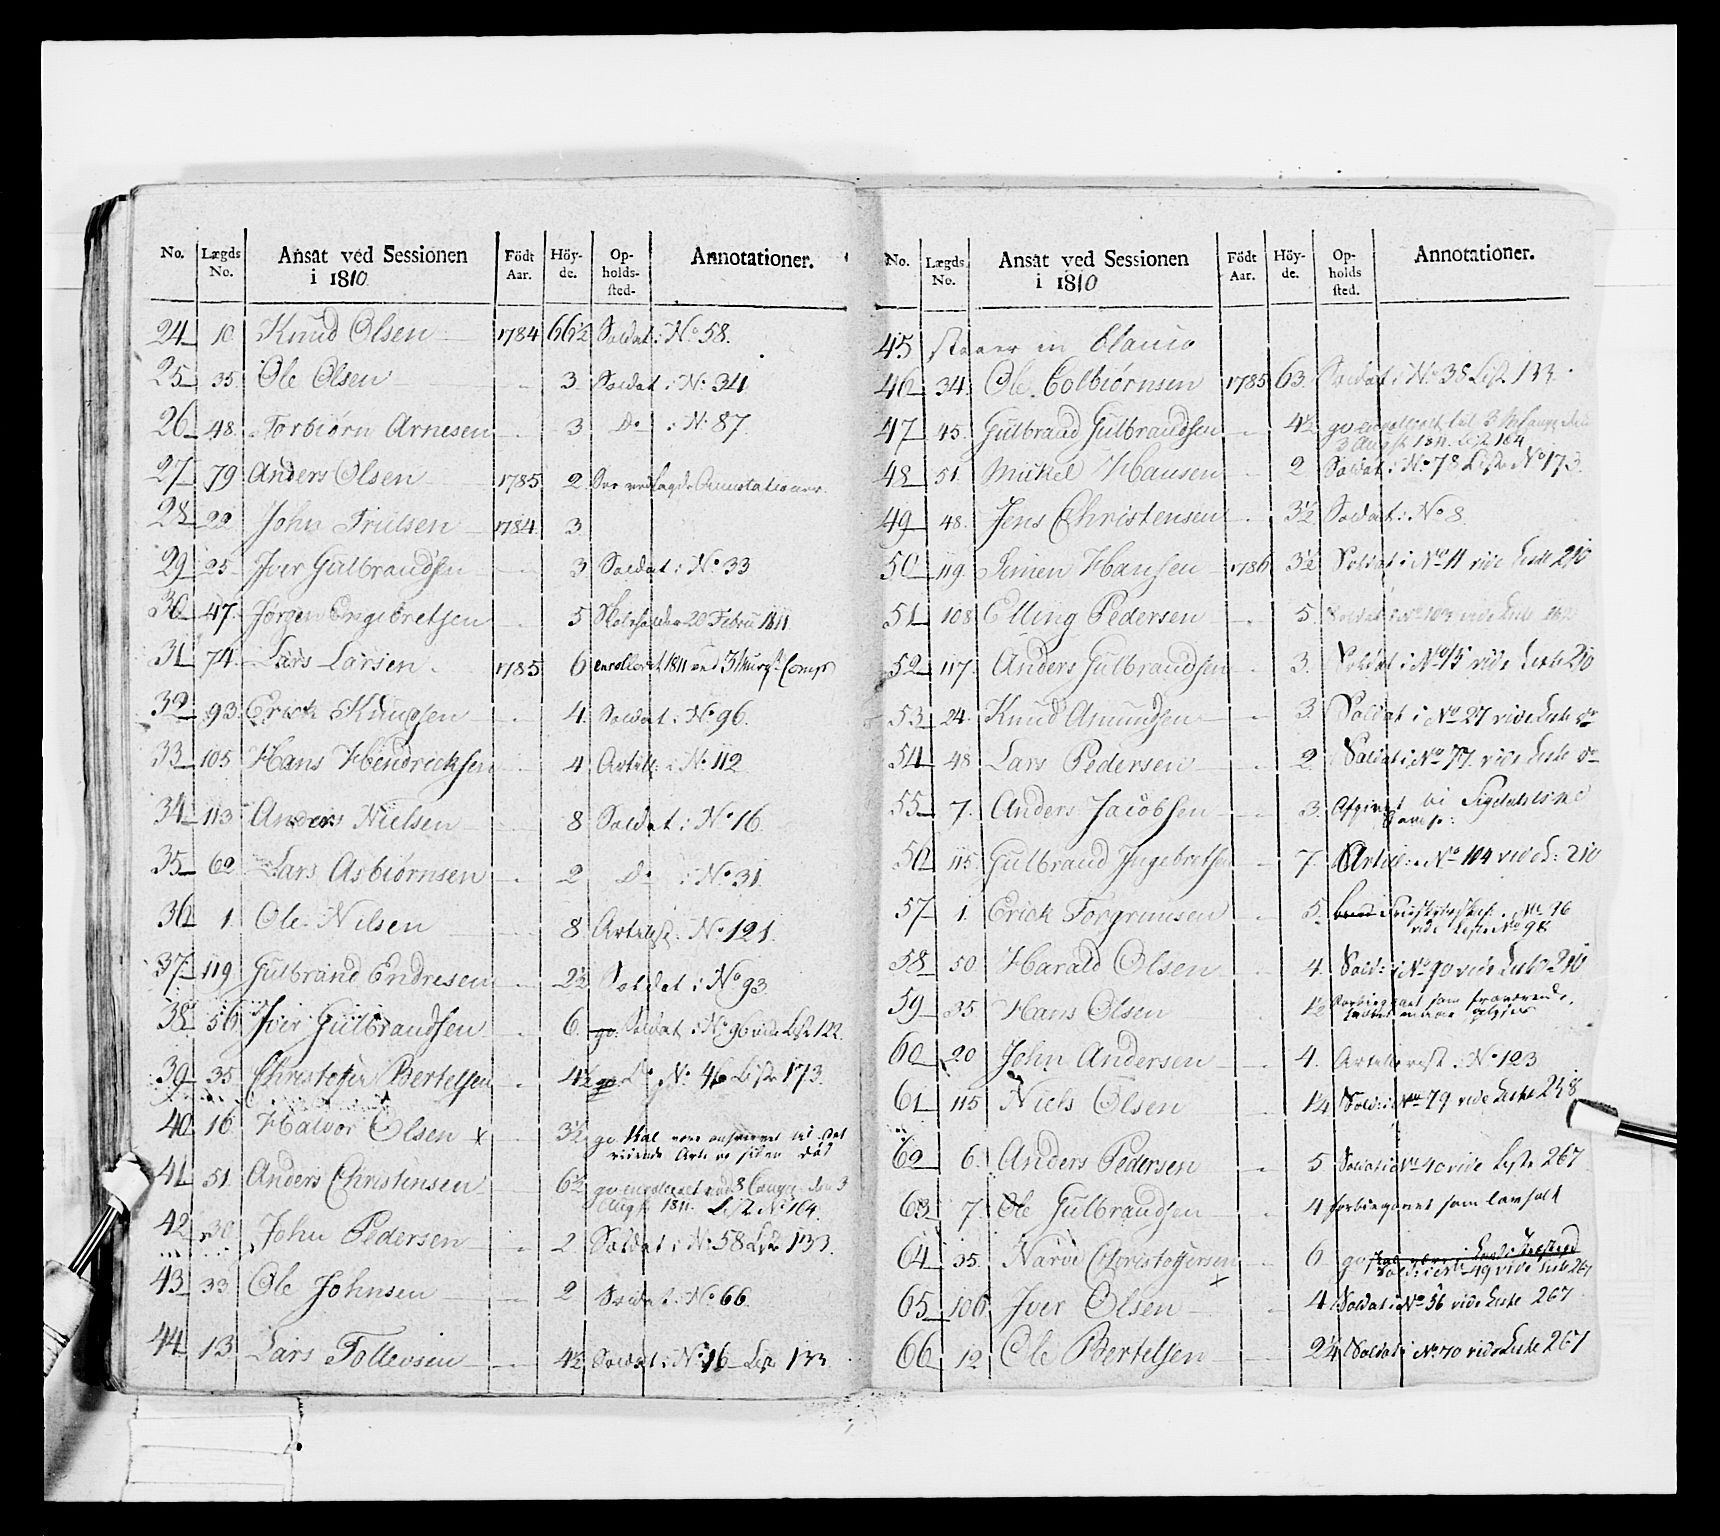 No. Lægds No. Ansat ved Sessionen i 1810 Födt Aar. Höy-de. Op-holds-sted- Annotationer.
24 10 Knud Olsen 1784 66½ Soldat i No 58.
25 35 Ole Olsen 3 Soldat i No 34
26 48 Torbiørn Arnesen 3 Do i No 87
27 79 Anders Olsen 1785 2 See vedlagde Annotationer
28 22 John Trulsen 1784 3
29 25 Iver Gulbrandsen 3 Soldat i No 33
30 47 Jørgen Engebretsen 5 Skoleholder 20 Febru 1811
31 74 Lars Larsen 1785 6 enrolleret 1811 ved 3 Comp
32 93 Erick Knudsen 4 Soldat i No 96
33 105 Hans Hendricksen 4 Artill: i No 112
34 113 Anders Nielsen 8 Soldat i No 16
35 62 Lars Asbiørnsen 2 Do i No 31
36 1 Ole Nilsen 8 Artillst: No 121
37 119 Gulbrand Endresen 2½ Soldat i No 93
38 56 Iver Gulbrandsen 6 Soldat i No 96 vide Liste 122
39 35 Christoffer Bertelsen 4½ Do No 46 Liste 173
40 16 Halvor Olsen x 3½ gv skal være
ridende Art: er siden død
41 51 Anders Christensen 6½ gv enrolleret ved 3 Comp: den 3
Aug 1811. Liste No 164.
42 30 John Pedersen 2 Soldat i No 58 Liste 133
43 33 Ole Johnsen 2 Soldat i No 66
44 13 Lars Tollevsen 4½ Soldat i No 16 Liste 133
No. Lægds No. Ansat ved Sessionen i 1810 Födt Aar. Höy-de. Op-holds sted. Annotationer.
45 staaer in blanco
46 34 Ole Colbiørnsen 1785 63 Soldat i No 38 Liste 133
47 45 Gulbrand Gulbrandsen 4½ gv enrolleret til 3
3 Augst 1811. Liste 164
48 51 Mickel Hansen 2 Soldat i No 78 Liste No 173
49 48 Jens Christensen 3½ Soldat i No 8
50 119 Simen Hansen 1786 3½ Soldat i No 11 vide Liste 210
51 108 Elling Pedersen 5 Soldat i No 104 vide Liste
52 117 Anders Gulbrandsen 3 Soldat i No 15 vide Liste 210
53 24 Knud Amundsen 3 Soldat i No 27 vide Liste do
54 48 Lars Pedersen 2 Soldat i No 77 vide Liste do
55 7 Anders Jacobsen 3 Afgivet til
Comp:
56 115 Gulbrand Ingebretsen 7 Artill: No 104 vide L: 210
57 1 Erick Torgrimsen 5 No 96
vide Liste No 98
58 50 Harald Olsen 4 Sold: i No 90 vide Liste 210
59 35 Hans Olsen 1½ forbiegaaet som fraværende,
60 20 John Andersen 4 Artillerist: No 123
61 115 Niels Olsen 1¼ Sold: i No 79 vide Liste 238
62 6 Anders Pedersen 5 Soldat i No 40 vide Liste 267
63 7 Ole Gulbrandsen 4 forbiegaaet som lamhalt
64 35 Narve Christoffersen x 6 gv
Sold: i No 49 vide Liste 267
65 106 Iver Olsen 4 Soldat i No 56 vide Liste 267
66 12 Ole Bertelsen 2¼ Soldat i No 70 vide Liste 267